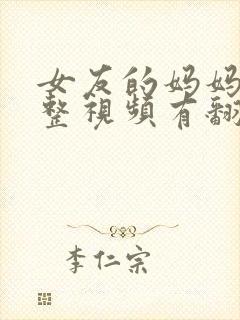 女友的妈妈
整視頻有翻
李仁宗